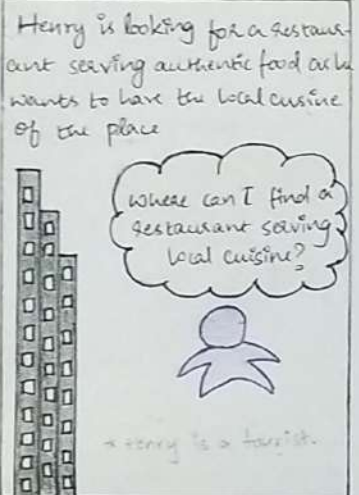 Henry is looking for a restaur-
ant serving authentic food as he
wants to have the local cusine
of the place
where can I find a
restaurant serving
local cuisine?
* Henry is a tourist.